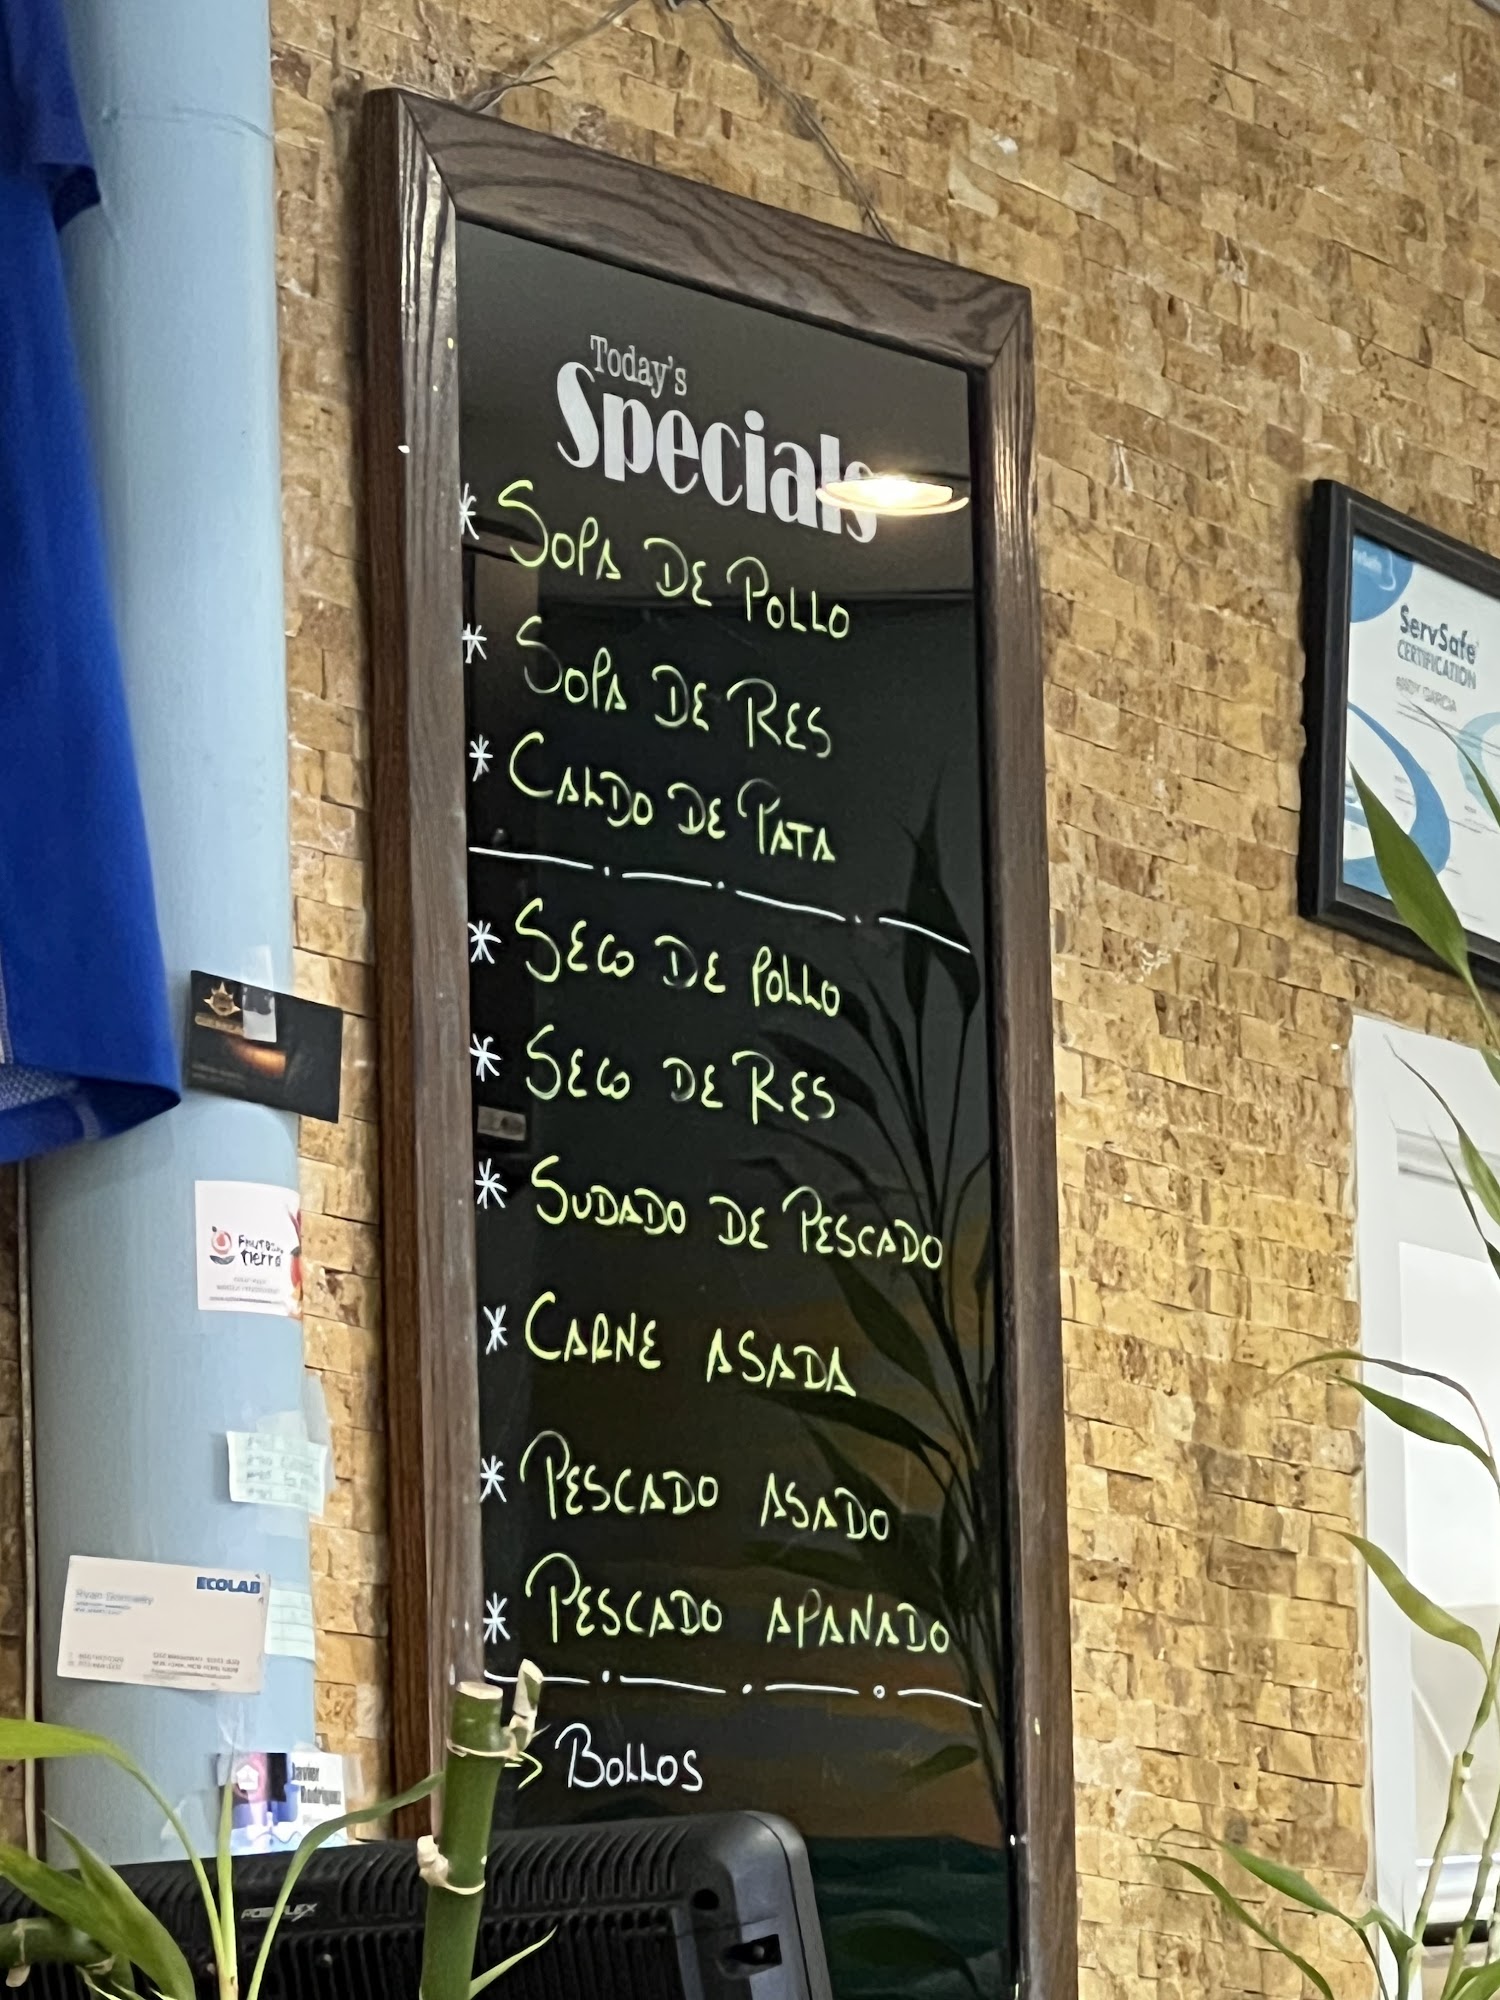 Today's
Specials
* SOPA DE POLLO
* SOPA DE RES
* CALDO DE PATA
* SECO DE POLLO
* SECO DE RES
* SUDADO DE PESCADO
* CARNE ASADA
* PESCADO ASADO
* PESCADO APANADO
→ BOLLOS
ServSafe
CERTIFICATION
GARCIA
FRUTOS
tierra
ECOLAB
Ryan
Javier
Rodriguez
POSIFLEX